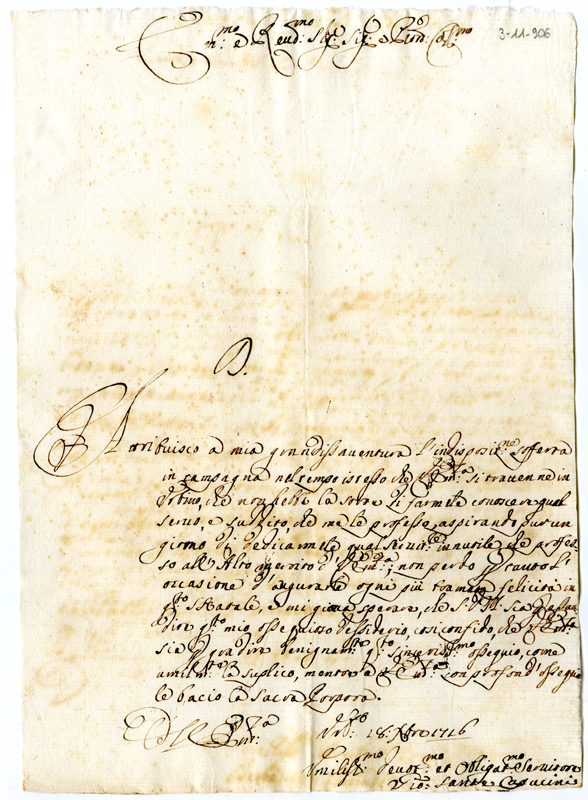 Em:mo e Reud:mo Sig:re Sig:re e Pron: Col:mo
3-11-906
D.
Attribuisco a mia grandiss:a uentura l'indisposit:ne sofferta
in campagna nel tempo istesso che V: Em:za si trauenne in
Vrbino, che non hebbi la sorte di farmele conoscere qual
seruo, e suddito, che me le professo, aspirando pur un
giorno di dedicarmele qual seruit:re innutile che profes-
so all'Alto merito d' V: Em:za; non perdo per tanto l'
occasione d'augurarle ogni più bramata felicità in
q:sto S: Natale, e mi gioua sperare, che S. D. M. sia
dire q:sto mio ossequioso desiderio, così confido che V: Em:za
sia p gradire benignam:te q:sto sincerissi:mo ossequio, come
umilm:te la suplico, mentre a V: Em:za con profond'ossequio
le bacio la Sacra Porpora.
Di V: Em:za Vrb:no 18: Xbre 1716
Vmiliss:mo Deuot:mo et Obligat:mo Seruitore
Gio: Sante Capucini